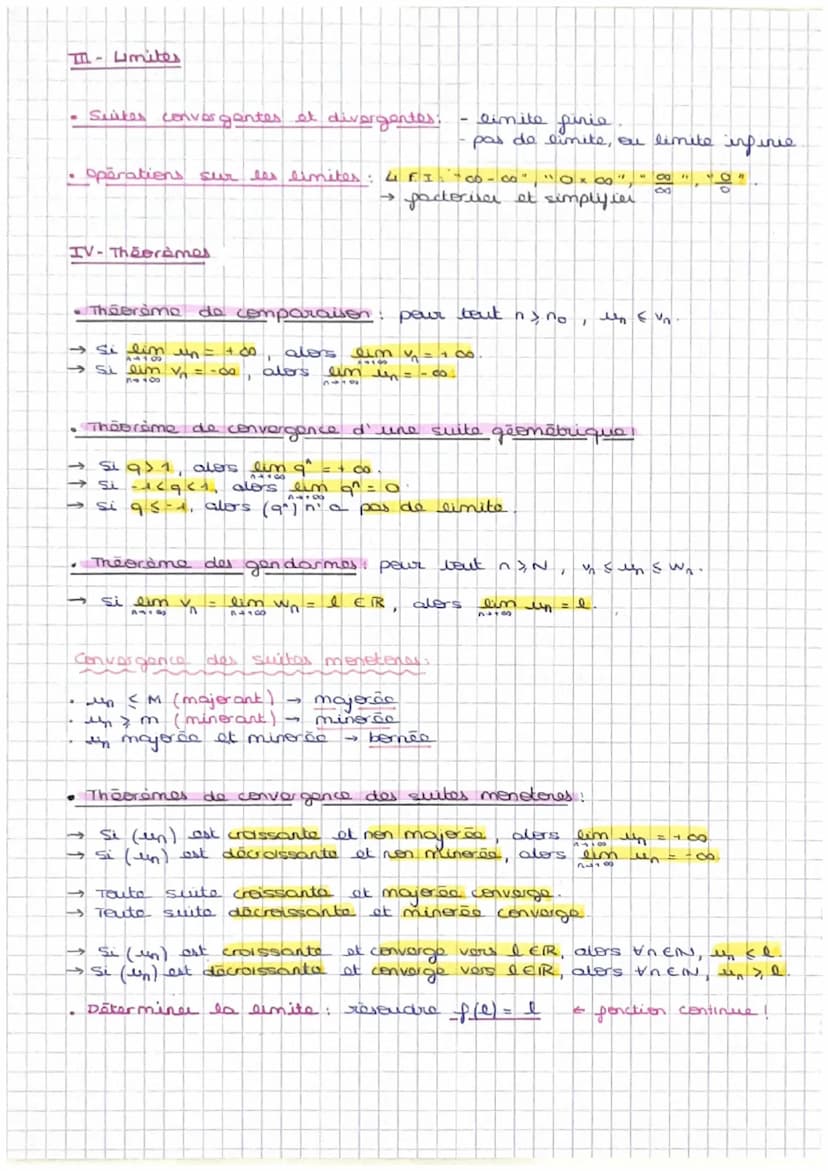 III - Limites
• Suites convergentes et divergentes : - limite finie.
- pas de limite, ou limite infinie
• Opérations sur les limites : 4 F.I. : "∞-∞", "0×∞", "∞/∞", "0/0".
→ factoriser et simplifier
IV - Théorèmes
• Théorème de comparaison : pour tout n ≥ n₀, uₙ ≤ vₙ.
→ Si lim uₙ = +∞, alors lim vₙ = +∞.
n→+∞ n→+∞
→ Si lim vₙ = -∞, alors lim uₙ = -∞.
n→+∞ n→+∞
• Théorème de convergence d'une suite géométrique :
→ Si q > 1, alors lim qⁿ = +∞.
n→+∞
→ Si -1 < q < 1, alors lim qⁿ = 0.
n→+∞
→ Si q ≤ -1, alors (qⁿ) n'a pas de limite.
• Théorème des gendarmes : pour tout n ≥ N, vₙ ≤ uₙ ≤ wₙ.
→ Si lim vₙ = lim wₙ = l ∈ ℝ, alors lim uₙ = l.
n→+∞ n→+∞ n→+∞
Convergence des suites monotones :
• uₙ ≤ M (majorant) → majorée
• uₙ ≥ m (minorant) → minorée
• uₙ majorée et minorée → bornée
• Théorèmes de convergence des suites monotones :
→ Si (uₙ) est croissante et non majorée, alors lim uₙ = +∞
n→+∞
→ Si (uₙ) est décroissante et non minorée, alors lim uₙ = -∞
n→+∞
→ Toute suite croissante et majorée converge.
→ Toute suite décroissante et minorée converge.
→ Si (uₙ) est croissante et converge vers l ∈ ℝ, alors ∀n ∈ ℕ, uₙ ≤ l.
→ Si (uₙ) est décroissante et converge vers l ∈ ℝ, alors ∀n ∈ ℕ, uₙ ≥ l.
• Déterminer la limite : résoudre f(l) = l ← fonction continue !